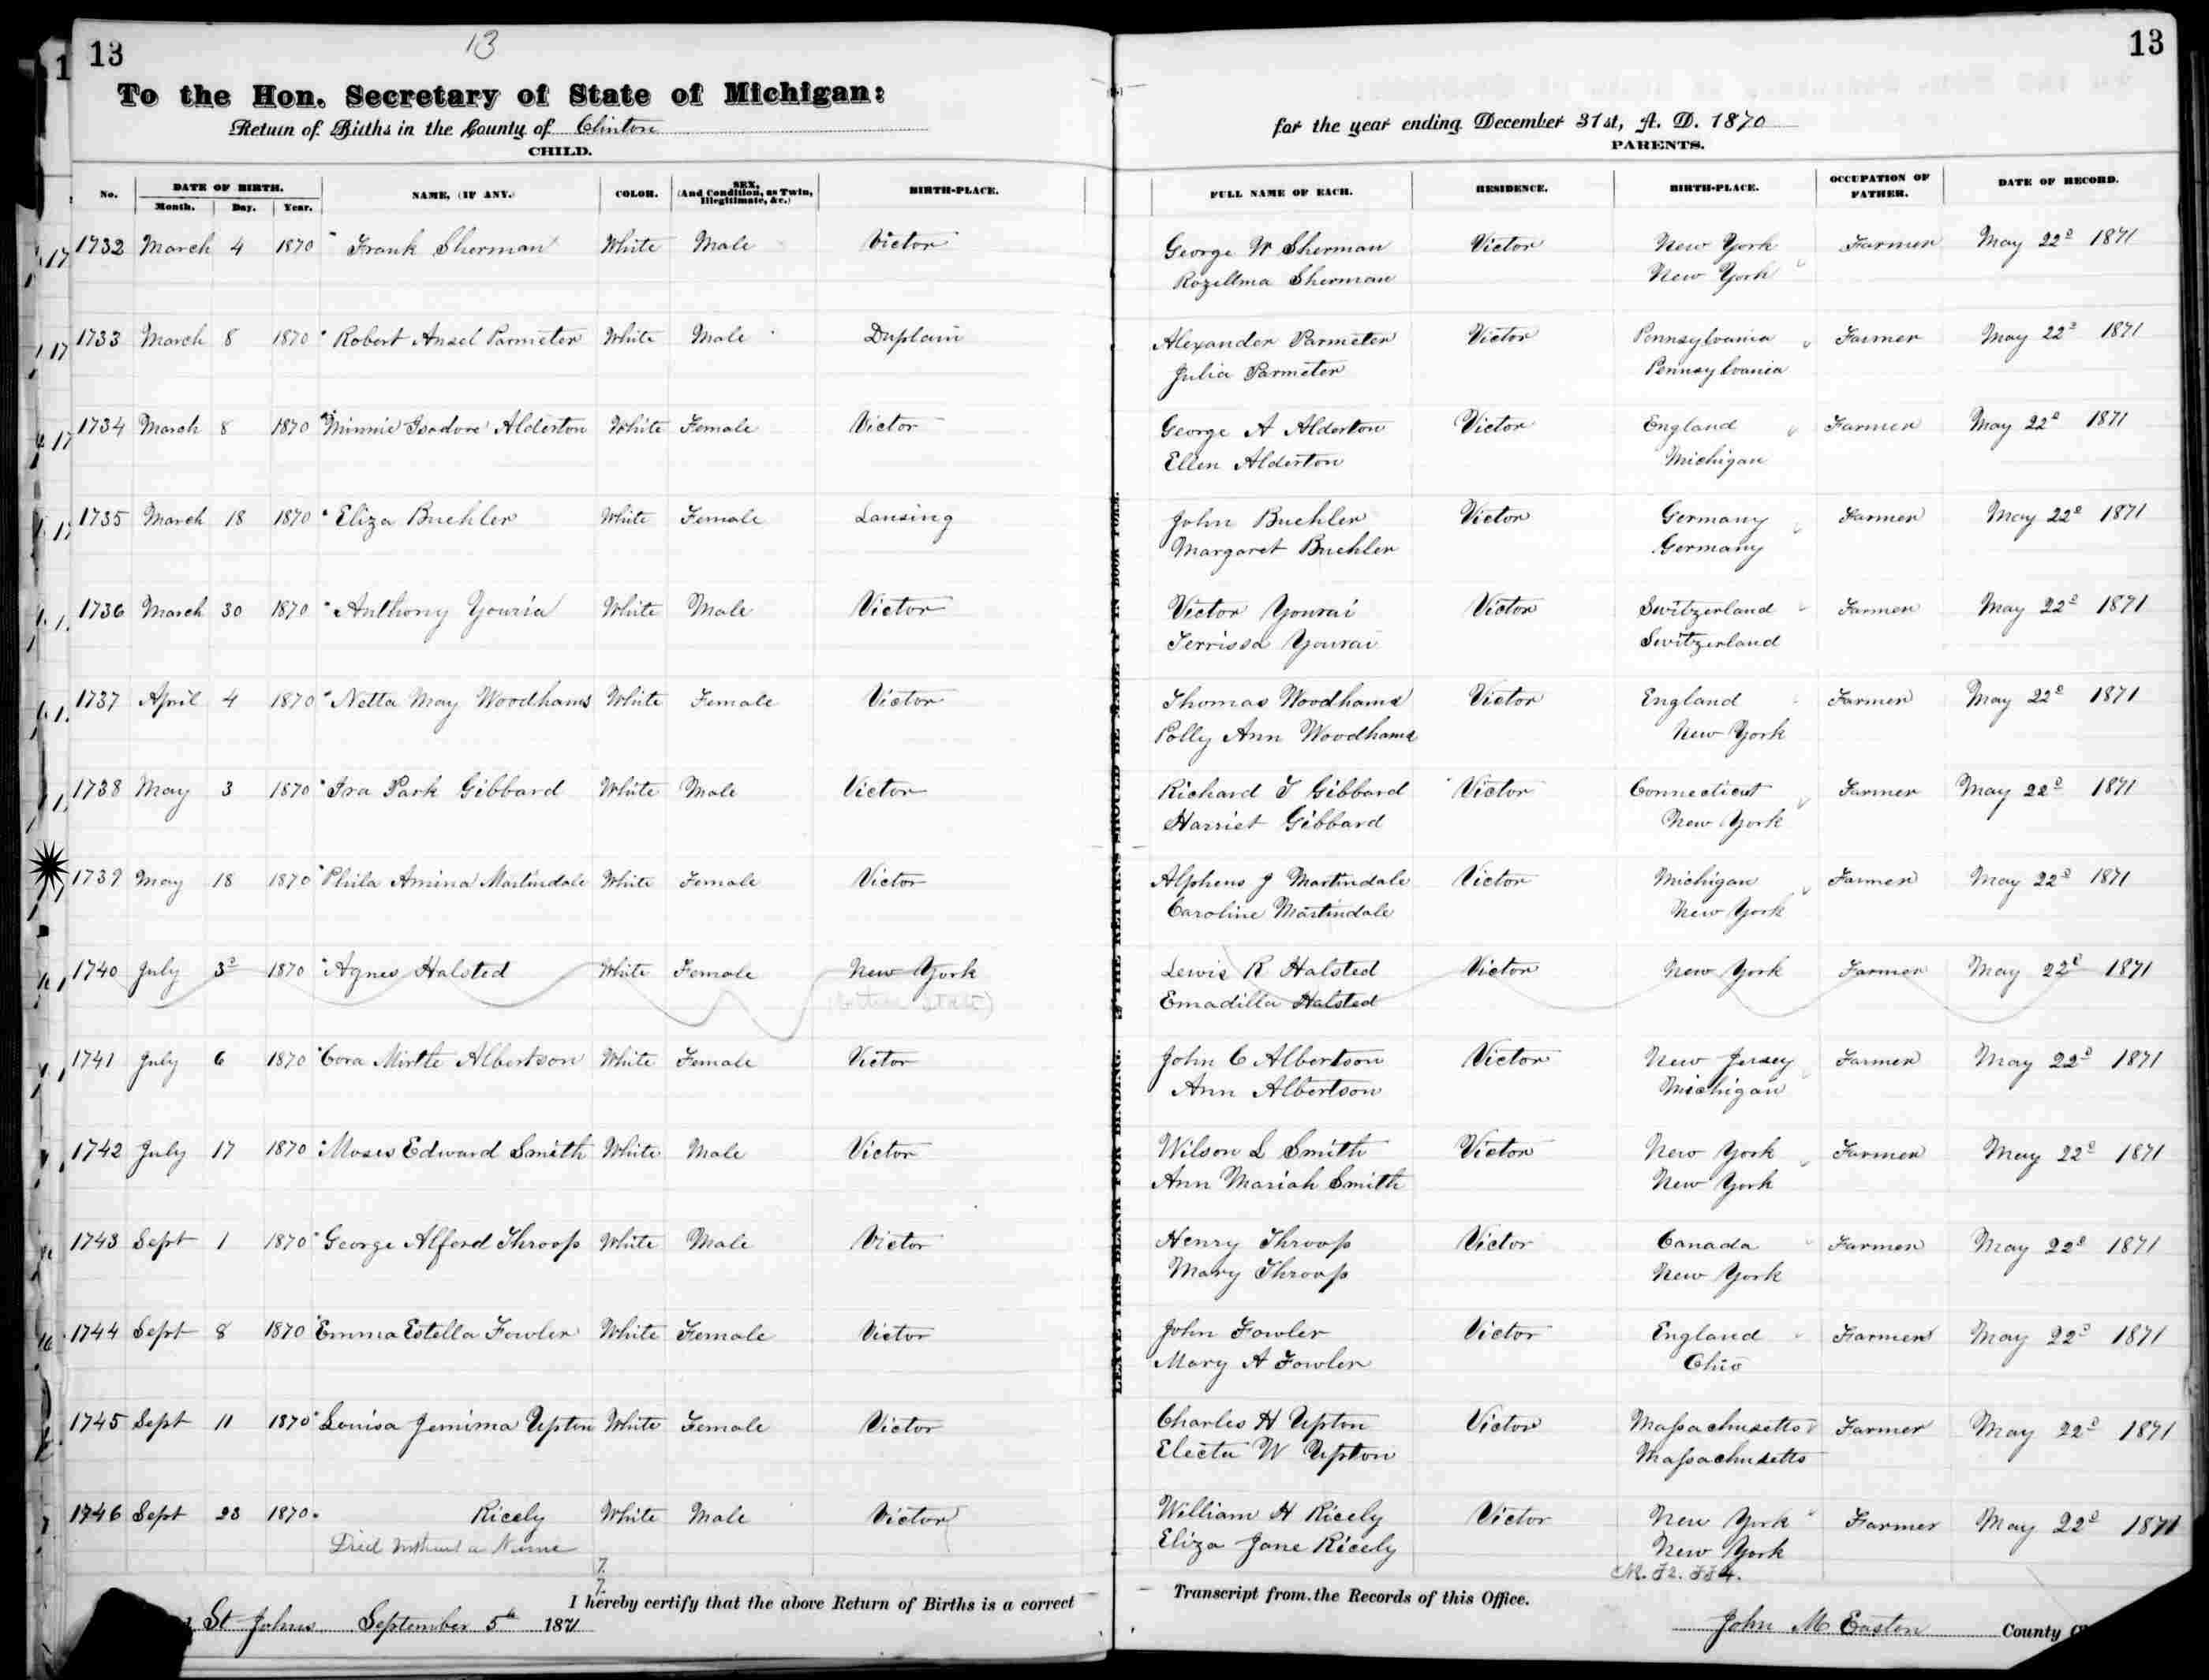 13
13
13
To the Hon. Secretary of State of Michigan:
Return of Births in the County of Clinton
for the year ending December 31st, A. D. 1870
CHILD.
PARENTS.
No. DATE OF BIRTH. NAME, (IF ANY.) COLOR. SEX, (And Condition, as Twin, Illegitimate, &c.) BIRTH-PLACE. FULL NAME OF EACH. RESIDENCE. BIRTH-PLACE. OCCUPATION OF FATHER. DATE OF RECORD.
Month. Day. Year.
1732 March 4 1870 Frank Sherman White Male Victor George W Sherman Victor New York Farmer May 22d 1871
Rozellma Sherman New York
1733 March 8 1870 Robert Ansel Parmeter White Male Duplain Alexander Parmeter Victor Pennsylvania Farmer May 22d 1871
Julia Parmeter Pennsylvania
1734 March 8 1870 Minnie Isadore Alderton White Female Victor George A Alderton Victor England Farmer May 22d 1871
Ellen Alderton Michigan
1735 March 18 1870 Eliza Buehler White Female Lansing John Buehler Victor Germany Farmer May 22d 1871
Margaret Buehler Germany
1736 March 30 1870 Anthony Youria White Male Victor Victor Yourai Victor Switzerland Farmer May 22d 1871
Terrissa Yourai Switzerland
1737 April 4 1870 Netta May Woodhams White Female Victor Thomas Woodhams Victor England Farmer May 22d 1871
Polly Ann Woodhams New York
1738 May 3 1870 Ira Park Gibbard White Male Victor Richard T Gibbard Victor Connecticut Farmer May 22d 1871
Harriet Gibbard New York
1739 May 18 1870 Phila Amina Martindale White Female Victor Alpheus J Martindale Victor Michigan Farmer May 22d 1871
Caroline Martindale New York
1740 July 3d 1870 Agnes Halsted White Female New York Lewis R Halsted Victor New York Farmer May 22d 1871
Emadilla Halsted
1741 July 6 1870 Cora Mirtle Albertson White Female Victor John C Albertson Victor New Jersey Farmer May 22d 1871
Ann Albertson Michigan
1742 July 17 1870 Moses Edward Smith White Male Victor Wilson L Smith Victor New York Farmer May 22d 1871
Ann Mariah Smith New York
1743 Sept 1 1870 George Alford Throop White Male Victor Henry Throop Victor Canada Farmer May 22d 1871
Mary Throop New York
1744 Sept 8 1870 Emma Estella Fowler White Female Victor John Fowler Victor England Farmer May 22d 1871
Mary A Fowler Ohio
1745 Sept 11 1870 Louisa Jemima Upton White Female Victor Charles H Upton Victor Massachusetts Farmer May 22d 1871
Electa W Upton Massachusetts
1746 Sept 23 1870 Ricely White Male Victor William H Ricely Victor New York Farmer May 22d 1871
Died without a Name Eliza Jane Ricely New York
7.
7.
I hereby certify that the above Return of Births is a correct
Transcript from the Records of this Office.
St Johns September 5th 1871
John M Easton County
LEAVE THIS BLANK FOR BINDING. IF THE RETURNS SHOULD BE MADE UP IN BOOK FORM.